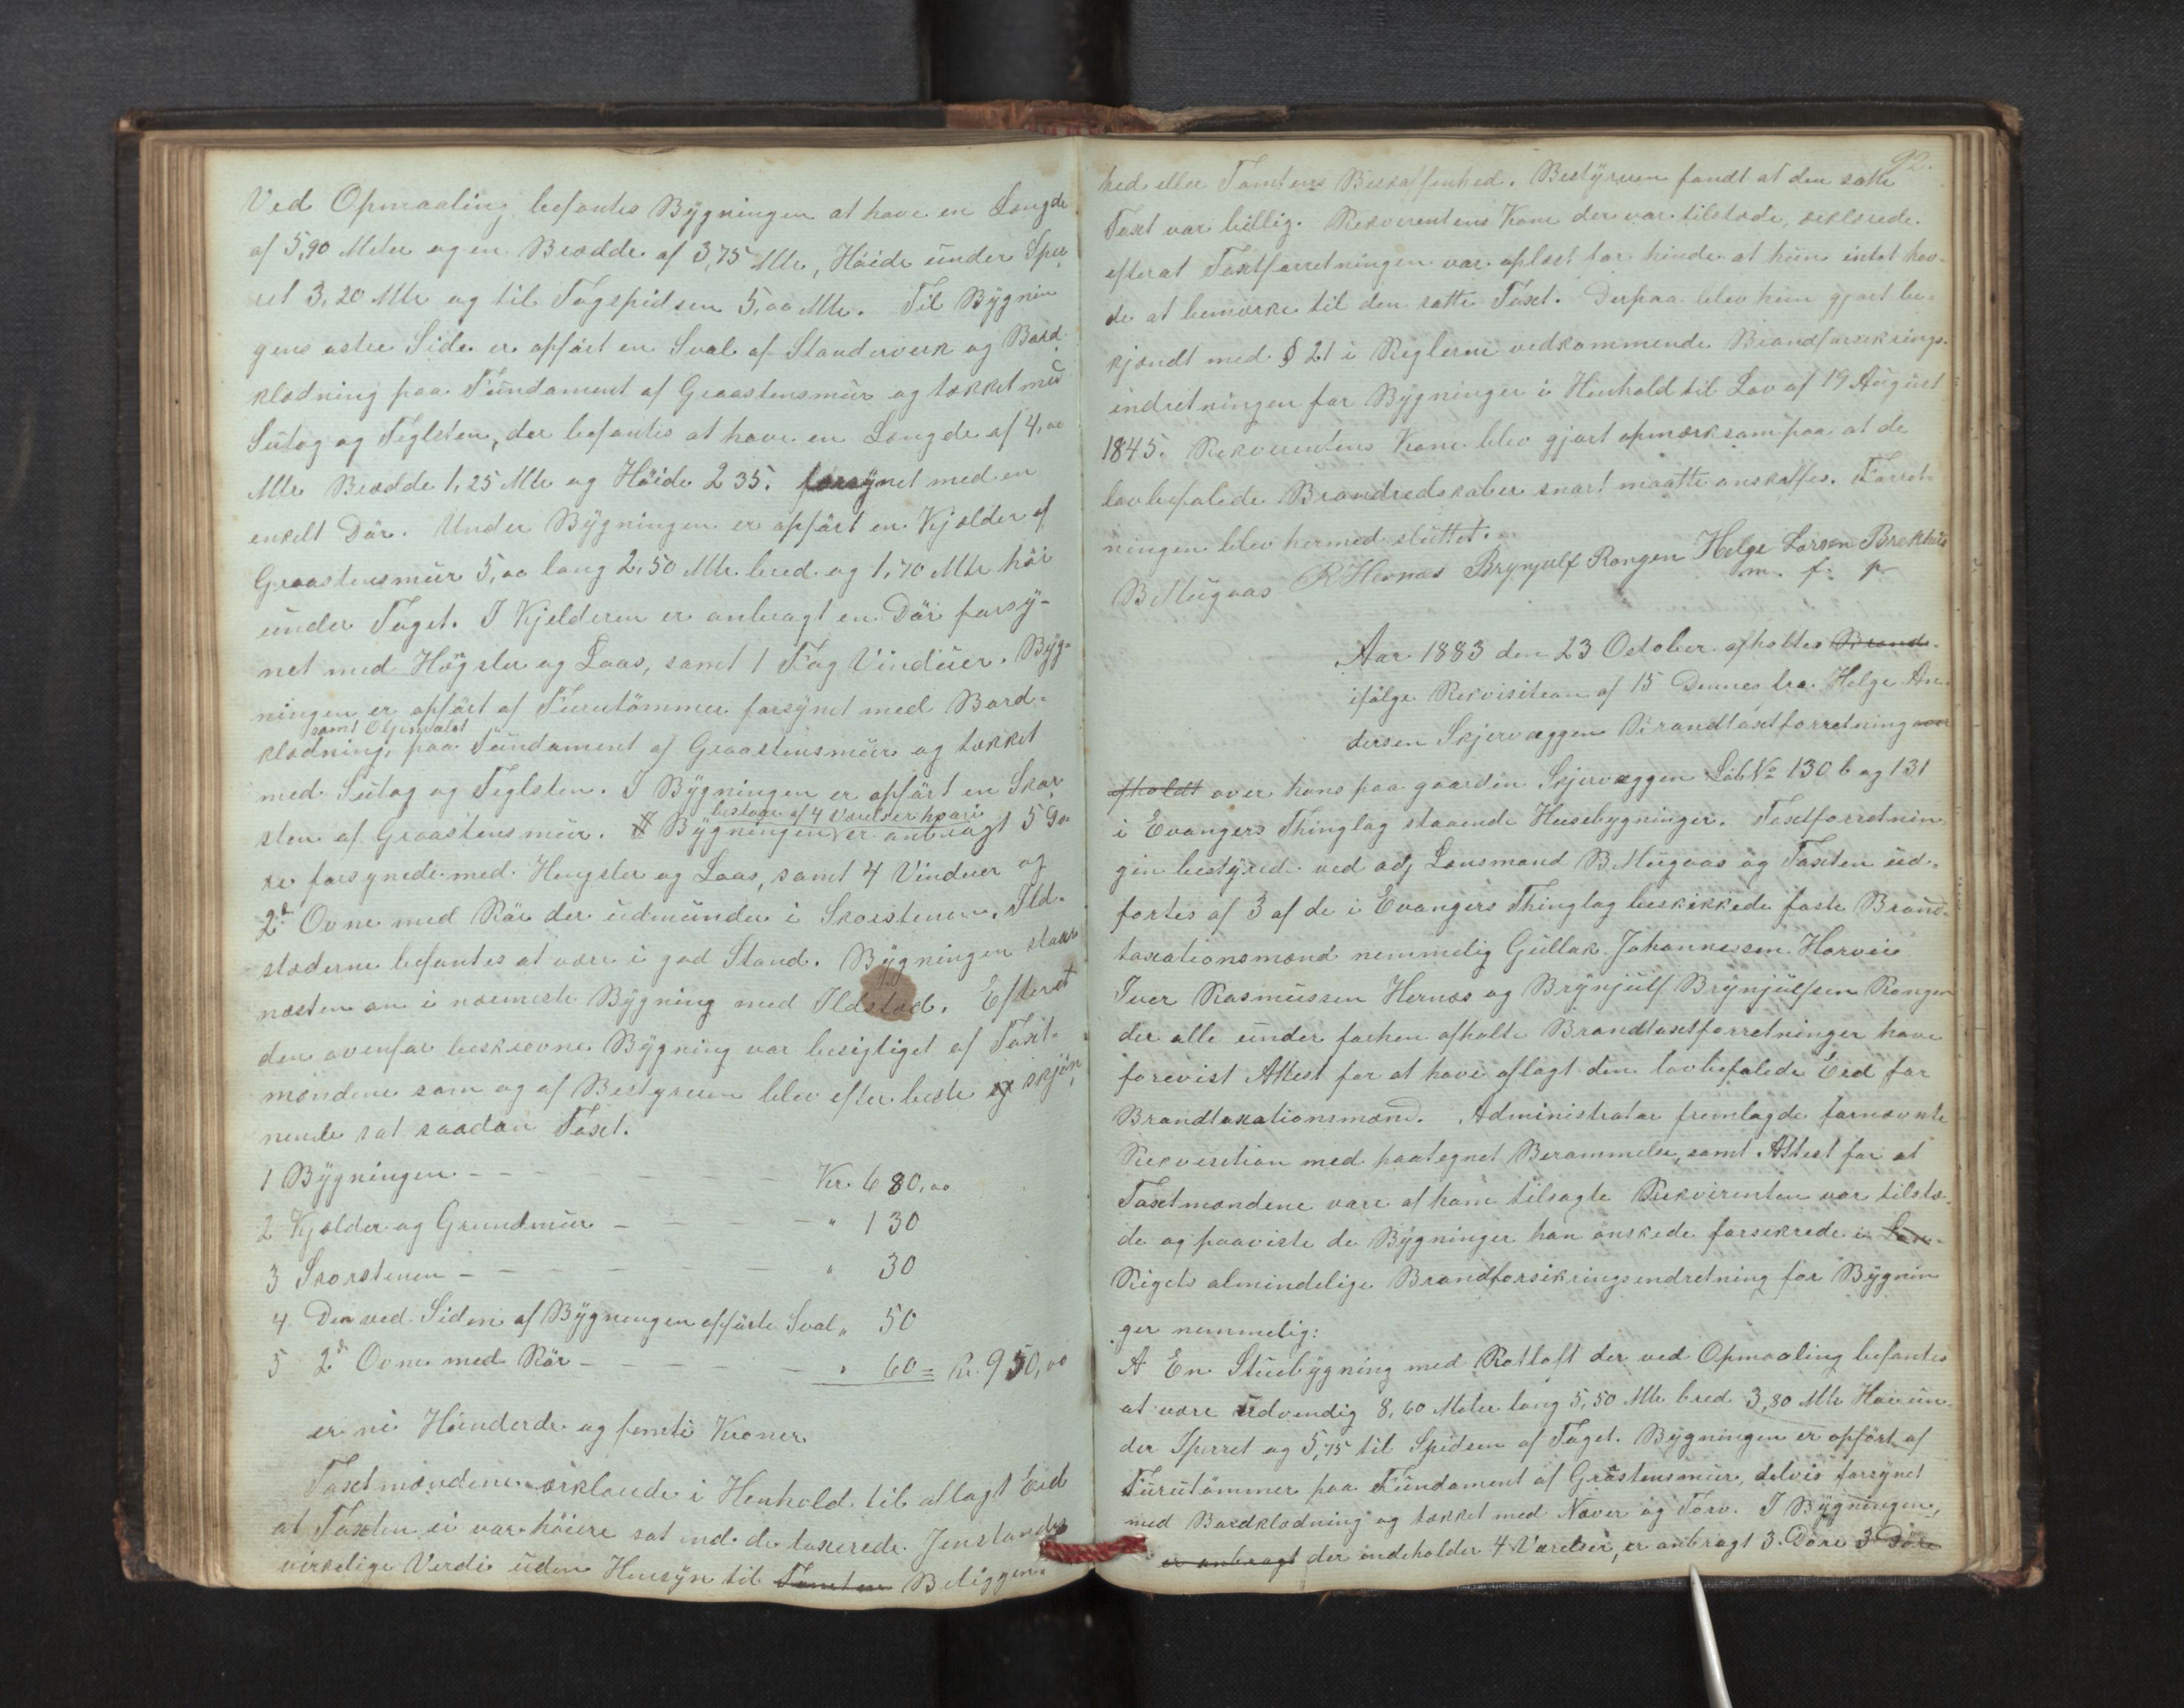 Ved Opmaaling befantes Bÿgningen at have en Længde
af 5,90 Meter og en Brædde af 3,75 Mtr, Höide under Sper
ret 3,20 Mtr og til Tagspidsen 5,00 Mtr. Til Bÿgnin
gens østre Side er opført en Sval af Stenderverk og Bord
klædning paa Fundament af Graastensmür og tækket med
Sutag og Teglsten, der befantes at have en Længde af 4,00
Mtr Brædde 1,25 Mtr og Höide 2 35. forsÿnet med en
enkelt Dör. Under Bÿgningen er opfört en Kjælder af
Graastensmür 5,00 lang 2,50 Mtr. bred og 1,70 Mtr höi
ünder Taget. I Kjelderen er anbragt en Dör forsÿ-
net med Högsler og Laas, samt 1 Fag Vindüer. Bÿg-
ningen er opfört af Fürutömmer forsÿnet med Bord-
samt Oljemalet
klædning, paa Fündament af Graastensmür og tækket
med Sutag og Teglsten. I Bÿgningen er opfört en Skor
bestaar af 4 Værelser hvori
sten af Graastensmür. Bÿgningen er anbragt 5 Dö
re forsynede med Hengsler og Laas, samt 4 Vinduer og
2d Ovne med Rör der üdmünder i Skorstenen. Ild-
stæderne befantes at være i god Stand. Bÿgningen staar
næsten an i nærmeste Bÿgning med Ildsted. Efterat
den ovenfor beskrevne Bÿgning var besigtiget af Taxt-
mændene som og af Bestyreren blev efter beste og skjön
nende sat saadan Taxt.
1 Bÿgningen - - - - - - Kr. 680,00
2 Kjælder og Grundmür - - - - " 130
3 Skorstenen - - - - - - " 30
4 Den ved Siden af Bÿgningen opförte Sval " 50
5 2d Ovne med Rör - - - - - " 60 = Kr. 950,00
er ni Hünderde og femti Kroner
Taxtmændene erklærede i Henhold til aflagt Eed
at Taxten ei var höiere sat end de taxerede Jenstandes
virkelige Verdi üden Hensÿn til Tomtens Beliggen-
92.
hed eller Tomtens Beskaffenhed. Bestÿreren fandt at den satte
Taxt var billig. Rekvirentens Kone der var tilstæde, erklærede
efterat Taxtforretningen var oplæst for hende at hün intet hav-
de at bemærke til den satte Taxt. Derpaa blev hun gjort be-
kjendt med § 21 i Reglerne vedkommende Brandforsikrings-
indretningen for Bÿgninger i Henhold til Lov af 19 August
1845. Rekvirentens Kone blev gjort opmærksom paa at de
lovbefalede Brandredskaber snart maatte anskaffes. Forret-
ningen blev hermed slüttet.
B Mugaas R Hernes Brynjulf Rongen Helge Larsen Brekhus
m. f. p.
Aar 1883 den 23 October afholtes Brand-
ifölge Rekvisition af 15 Dennes fra Helge An-
dersen Skjervæggen Brandtaxtforretning over
afholdt over hans paa gaarden Skjervæggen Löb No 130 b og 131
i Evangers Thinglag staaende Husebygninger. Taxtforretnin
gen bestÿred ved adj Lensmand B Mugaas og Taxten üd-
fortes af 3 af de i Evangers Thinglag beskikkede faste Brand-
taxationsmænd nemmelig Gullak Johannessen Horvei
Iver Rasmussen Hernæs og Brÿnjulf Brÿnjülfsen Rongen
der alle ünder forhen afholte Brandtaxtforretninger have
forevist Attest for at have aflagt den lovbefalede Eed for
Brandtaxationsmænd. Administrator fremlagde fornævnte
Rekvisition med paategnet Berammelse, samt Attest for at
Taxtmændene vare af ham tilsagte Rekvirenten var tilstæ-
de og paaviste de Bÿgninger han önskede forsikrede i Lan-
Rigets almindelige Brandforsikringsindretning for Bÿgnin
ger nemmelig:
A En Stuebÿgning med Rotloft der ved Opmaaling befantes
at være üdvendig 8,60 Meter lang 5,50 Mtr bred 3,80 Mtr Höi ün-
der Sperret og 5,75 til Spidsen af Taget. Bÿgningen er opfört af
Fürutömmer paa Fündament af Gråstensmür, delvis forsÿnet
med Bordklædning og tækket med Næver og Torv. I Bÿgningen,
er anbragt der indeholder 4 Værelser, er anbragt 3 Döre 3 Döre